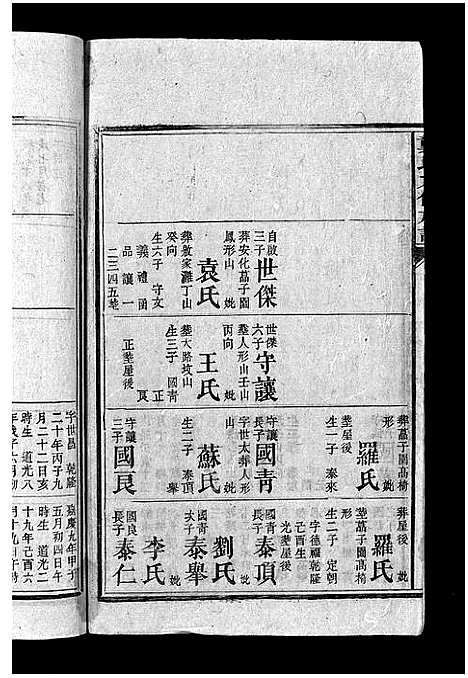 自啟
三子
世傑
葬安化茘子園
鳳形山 妣
袁氏
葬敦家灘丁山
癸向
生六子 守文
義 禮 函
品 讓 一
二三四五塟
世傑
六子
守讓
塟人形山壬山
丙向 妣
王氏
塟大路坟山
生三子 國青
正 艮
正塟屋後
葬茘子園高椅
形 妣
羅氏
塟屋後
生一子 泰來
守讓
長子
國青
字世太葬人形
山 妣
蘇氏
生二子 泰頂
舉
守讓
三子
國艮
字世昌 乾隆
二十年丙子九
月二十二日亥
時生 道光八
葬屋後 妣
羅氏
塟茘子園高椅
形
生一子 定朝
國青
長子
泰頂
字德福乾隆
己酉生
光塟屋後
妣
劉氏
國青
次子
泰舉
妣
李氏
國良
長子
泰仁
嘉慶九年甲子
五月初四日午
時生 道光二
十九年己酉六